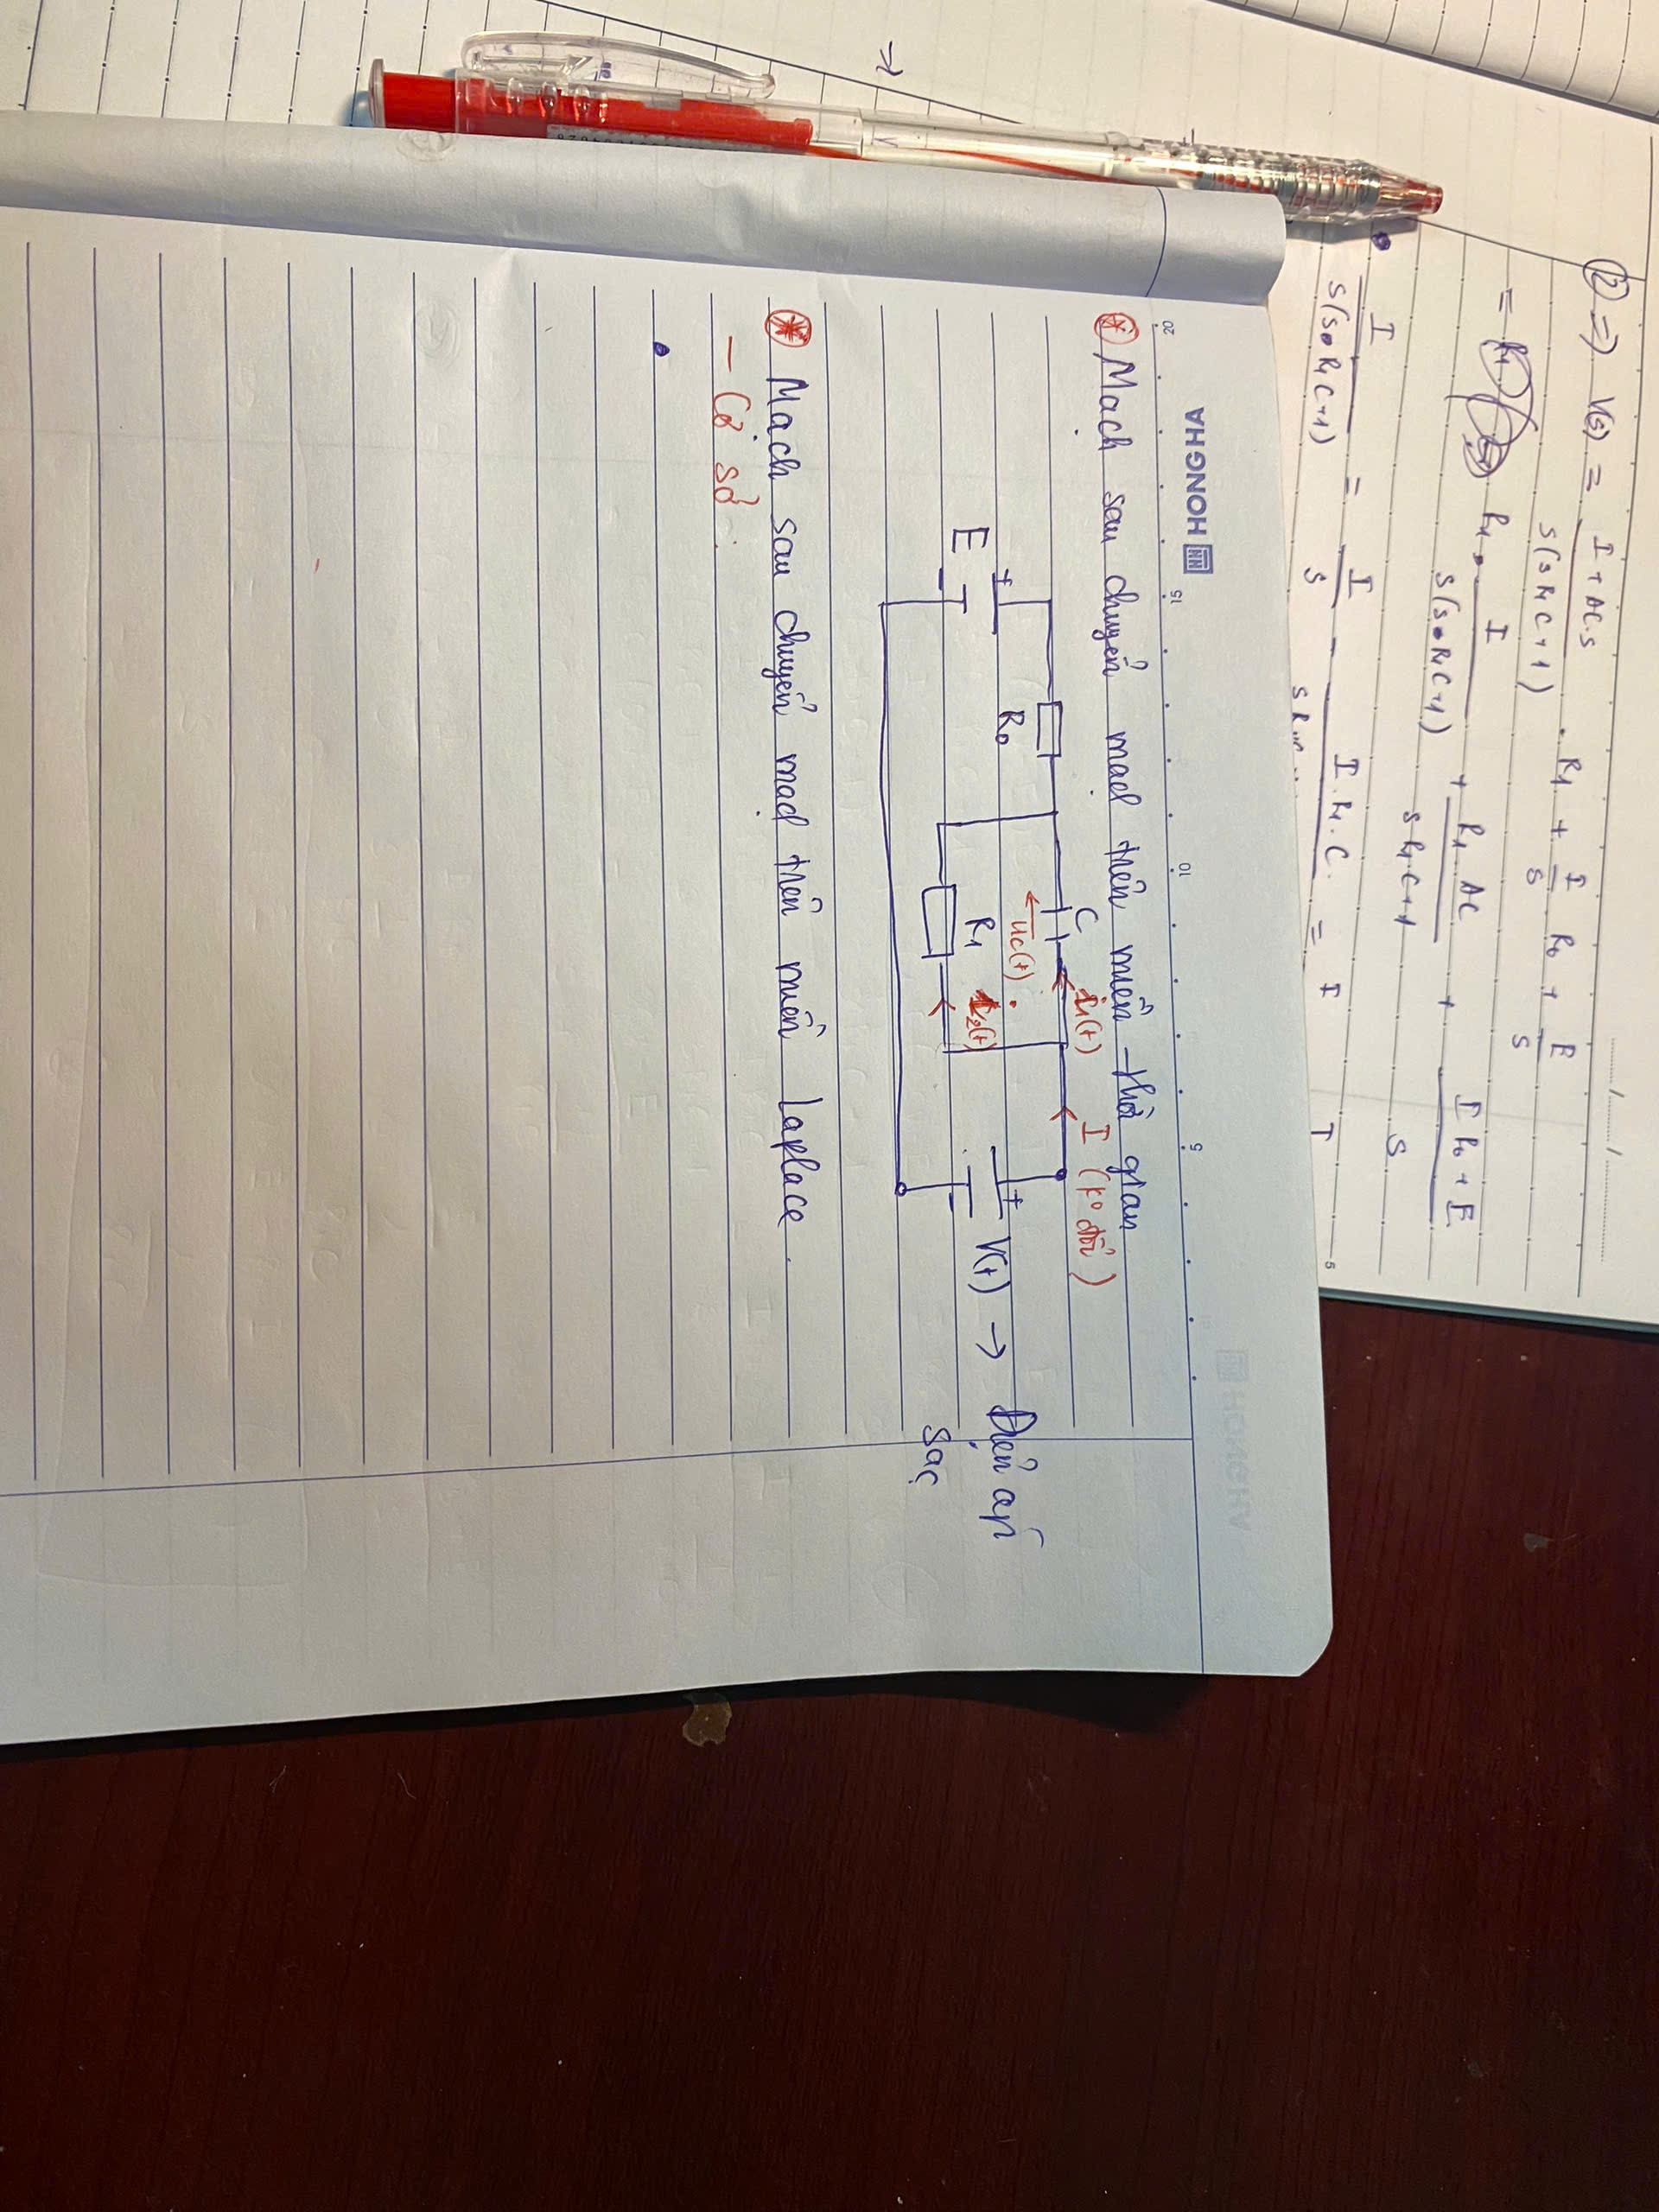 ② => V(s) = I + AC.s / s(sR₁C+1) . R₁ + I/s R₀ + E/s
= R₁ . I / s(s.R₁C+1) + R₁ AC / sR₁C+1 + I R₀ + E / s
I / s(s.R₁C+1) = I/s - I.R₁.C. / = I
HONG HA
20 15 10 5
* Mạch sau chuyển mạch trên miền thời gian
C
i₁(t)
I (ko đổi)
R₀
u_C(t)
E
+
+
R₁
i₂(t)
V(t) → Điện áp
sạc
* Mạch sau chuyển mạch trên miền Laplace.
- Cơ sở: